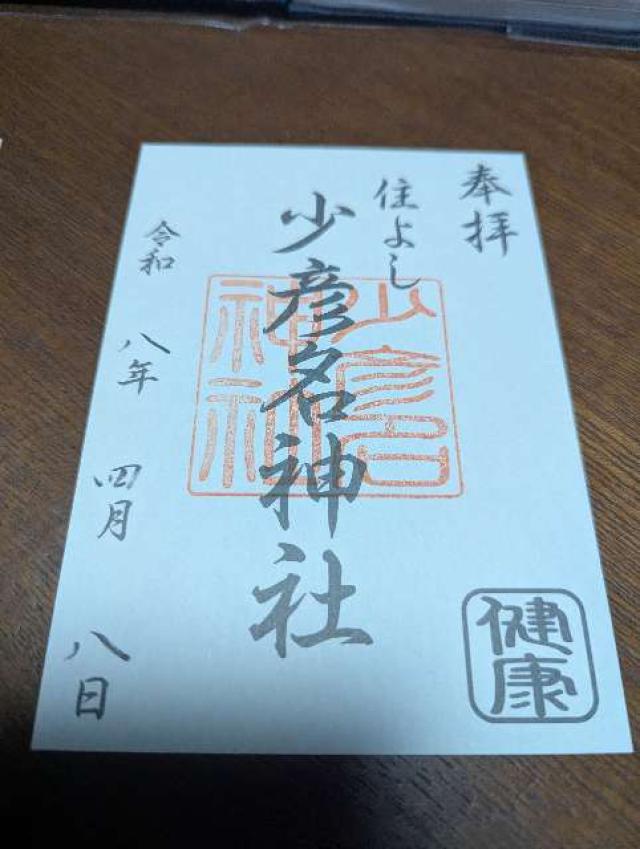 奉拝
住よし
少彦名神社
少彦名
神社
令和 八年 四月 八日
健康